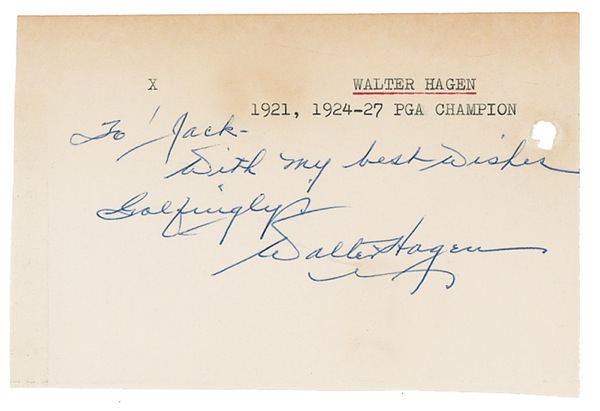 X WALTER HAGEN
1921, 1924-27 PGA CHAMPION
To Jack-
With my best wishes
Golfingly
Walter Hagen